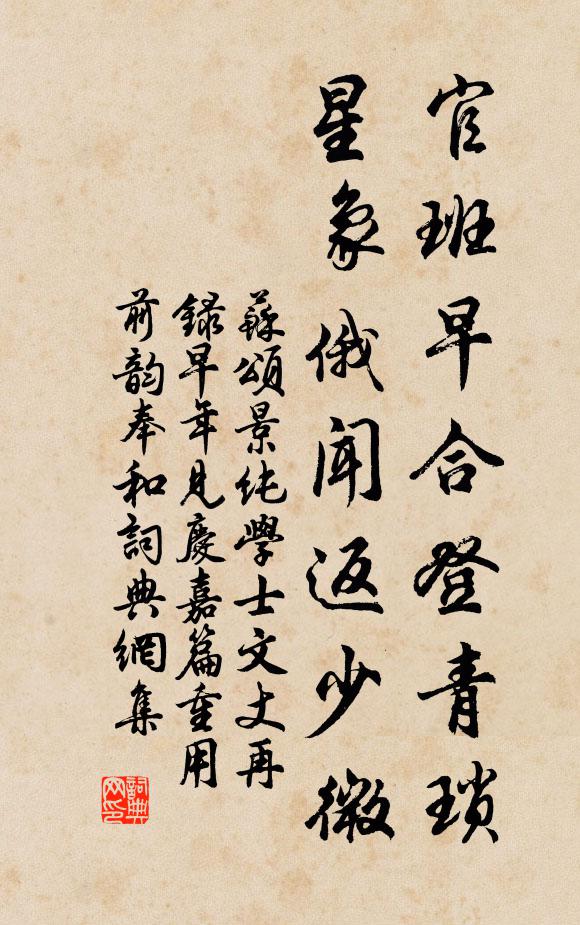 官班早合登青瑣
星象俄聞返少微
蘇頌景純學士文丈再
録早年見慶嘉篇重用
前韵奉和詞典網集
詞典网印